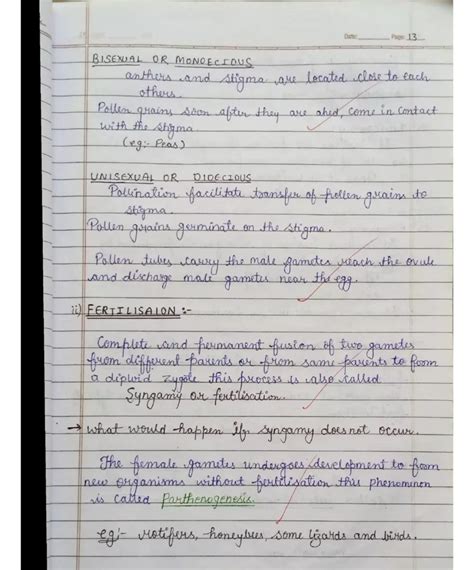 Date: Page: 13
BISEXUAL OR MONOECIOUS
anthers and stigma are located close to each
others.
Pollen grains soon after they are shed, come in contact
with the stigma
(eg:- Peas)
UNISEXUAL OR DIOECIOUS
Pollination facilitate transfer of pollen grains to
stigma.
Pollen grains germinate on the stigma.
Pollen tubes carry the male gametes reach the ovule
and discharge male gametes near the egg.
ii) FERTILISAION :-
Complete and permanent fusion of two gametes
from different parents or from same parents to form
a diploid zygote this process is also called
Syngamy or fertilisation.
→ what would happen if syngamy does not occur.
The female gametes undergoes development to form
new organisms without fertilisation this phenominon
is called Parthenogenesis.
eg:- rotifers, honeybees, some lizards and birds.